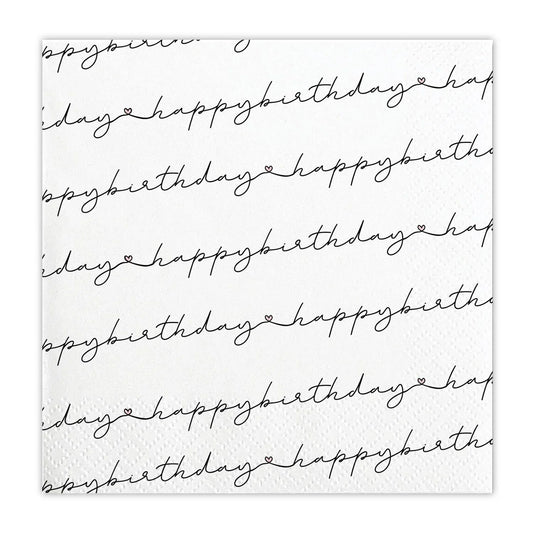 ppybirth
day♡happybirthday♡hap
ppybirthday♡happybirthd
day♡happybirthday♡hap
ppybirthday♡happybirthd
day♡happybirthday♡hap
ppybirthday♡happybirthd